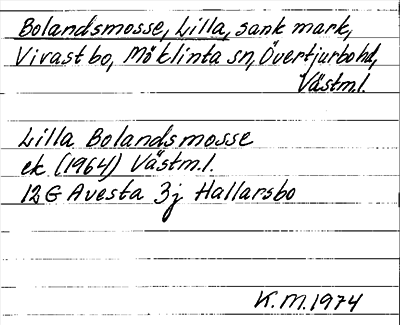 Bolandsmosse, Lilla, sank mark,
Vivastbo, Möklinta sn, Övertjurbo hd,
Västm.l.
Lilla Bolandsmosse
ek (1964) Västm.l.
12G Avesta 3j Hallarsbo
K.M. 1974